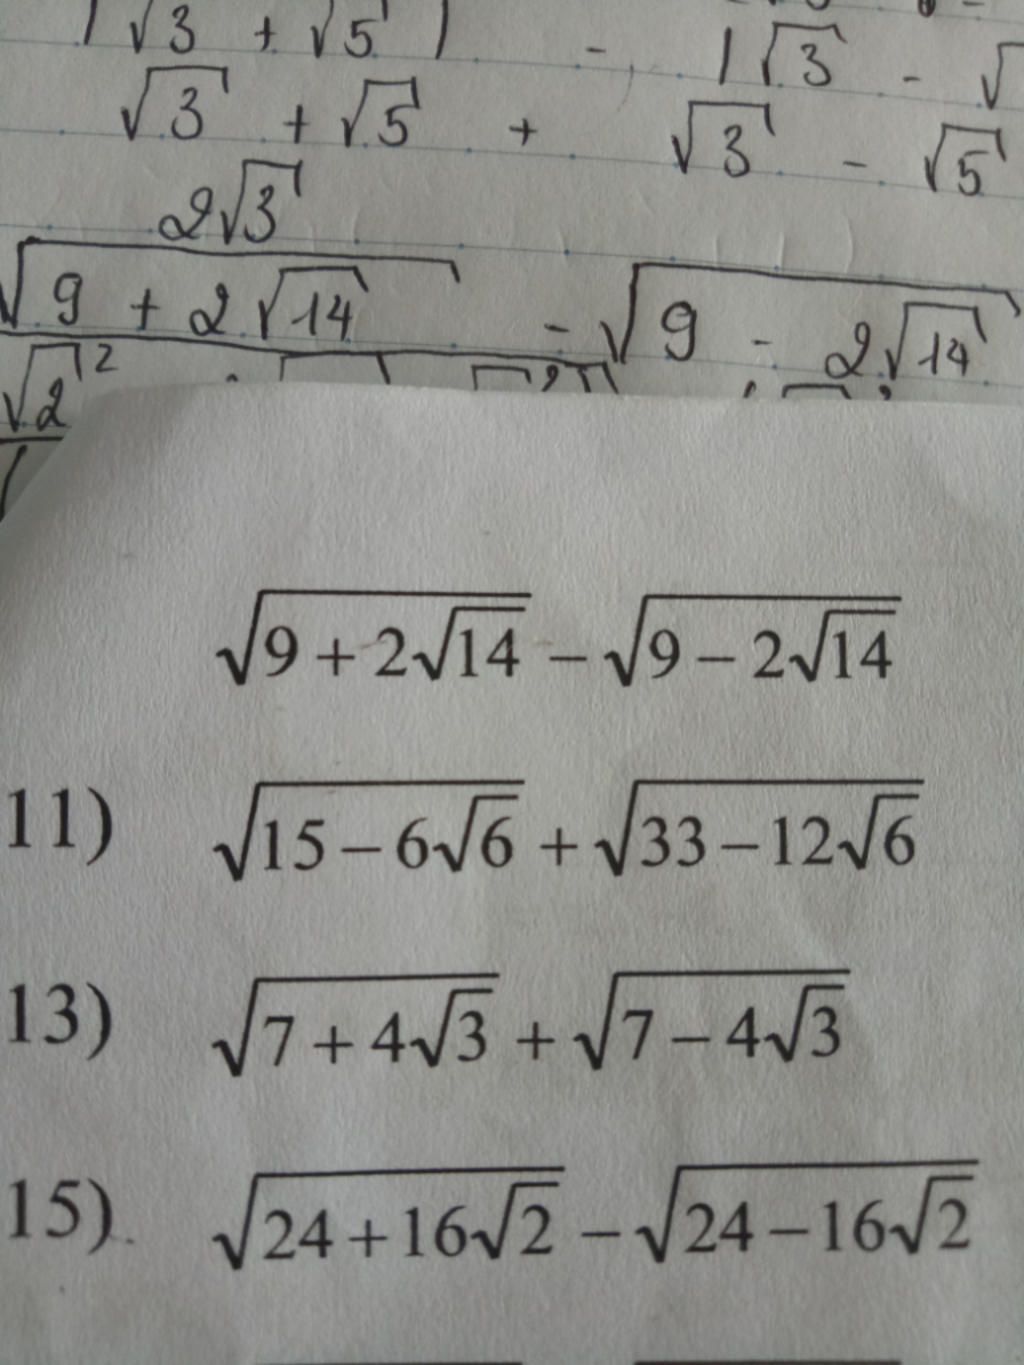 |√3 + √5| - |√3 - √
√3 + √5 + √3 - √5
2√3
√(9 + 2√14) - √(9 - 2√14)
√2²
√(9 + 2√14) − √(9 − 2√14)
11) √(15 − 6√6) + √(33 − 12√6)
13) √(7 + 4√3) + √(7 − 4√3)
15) √(24 + 16√2) − √(24 − 16√2)